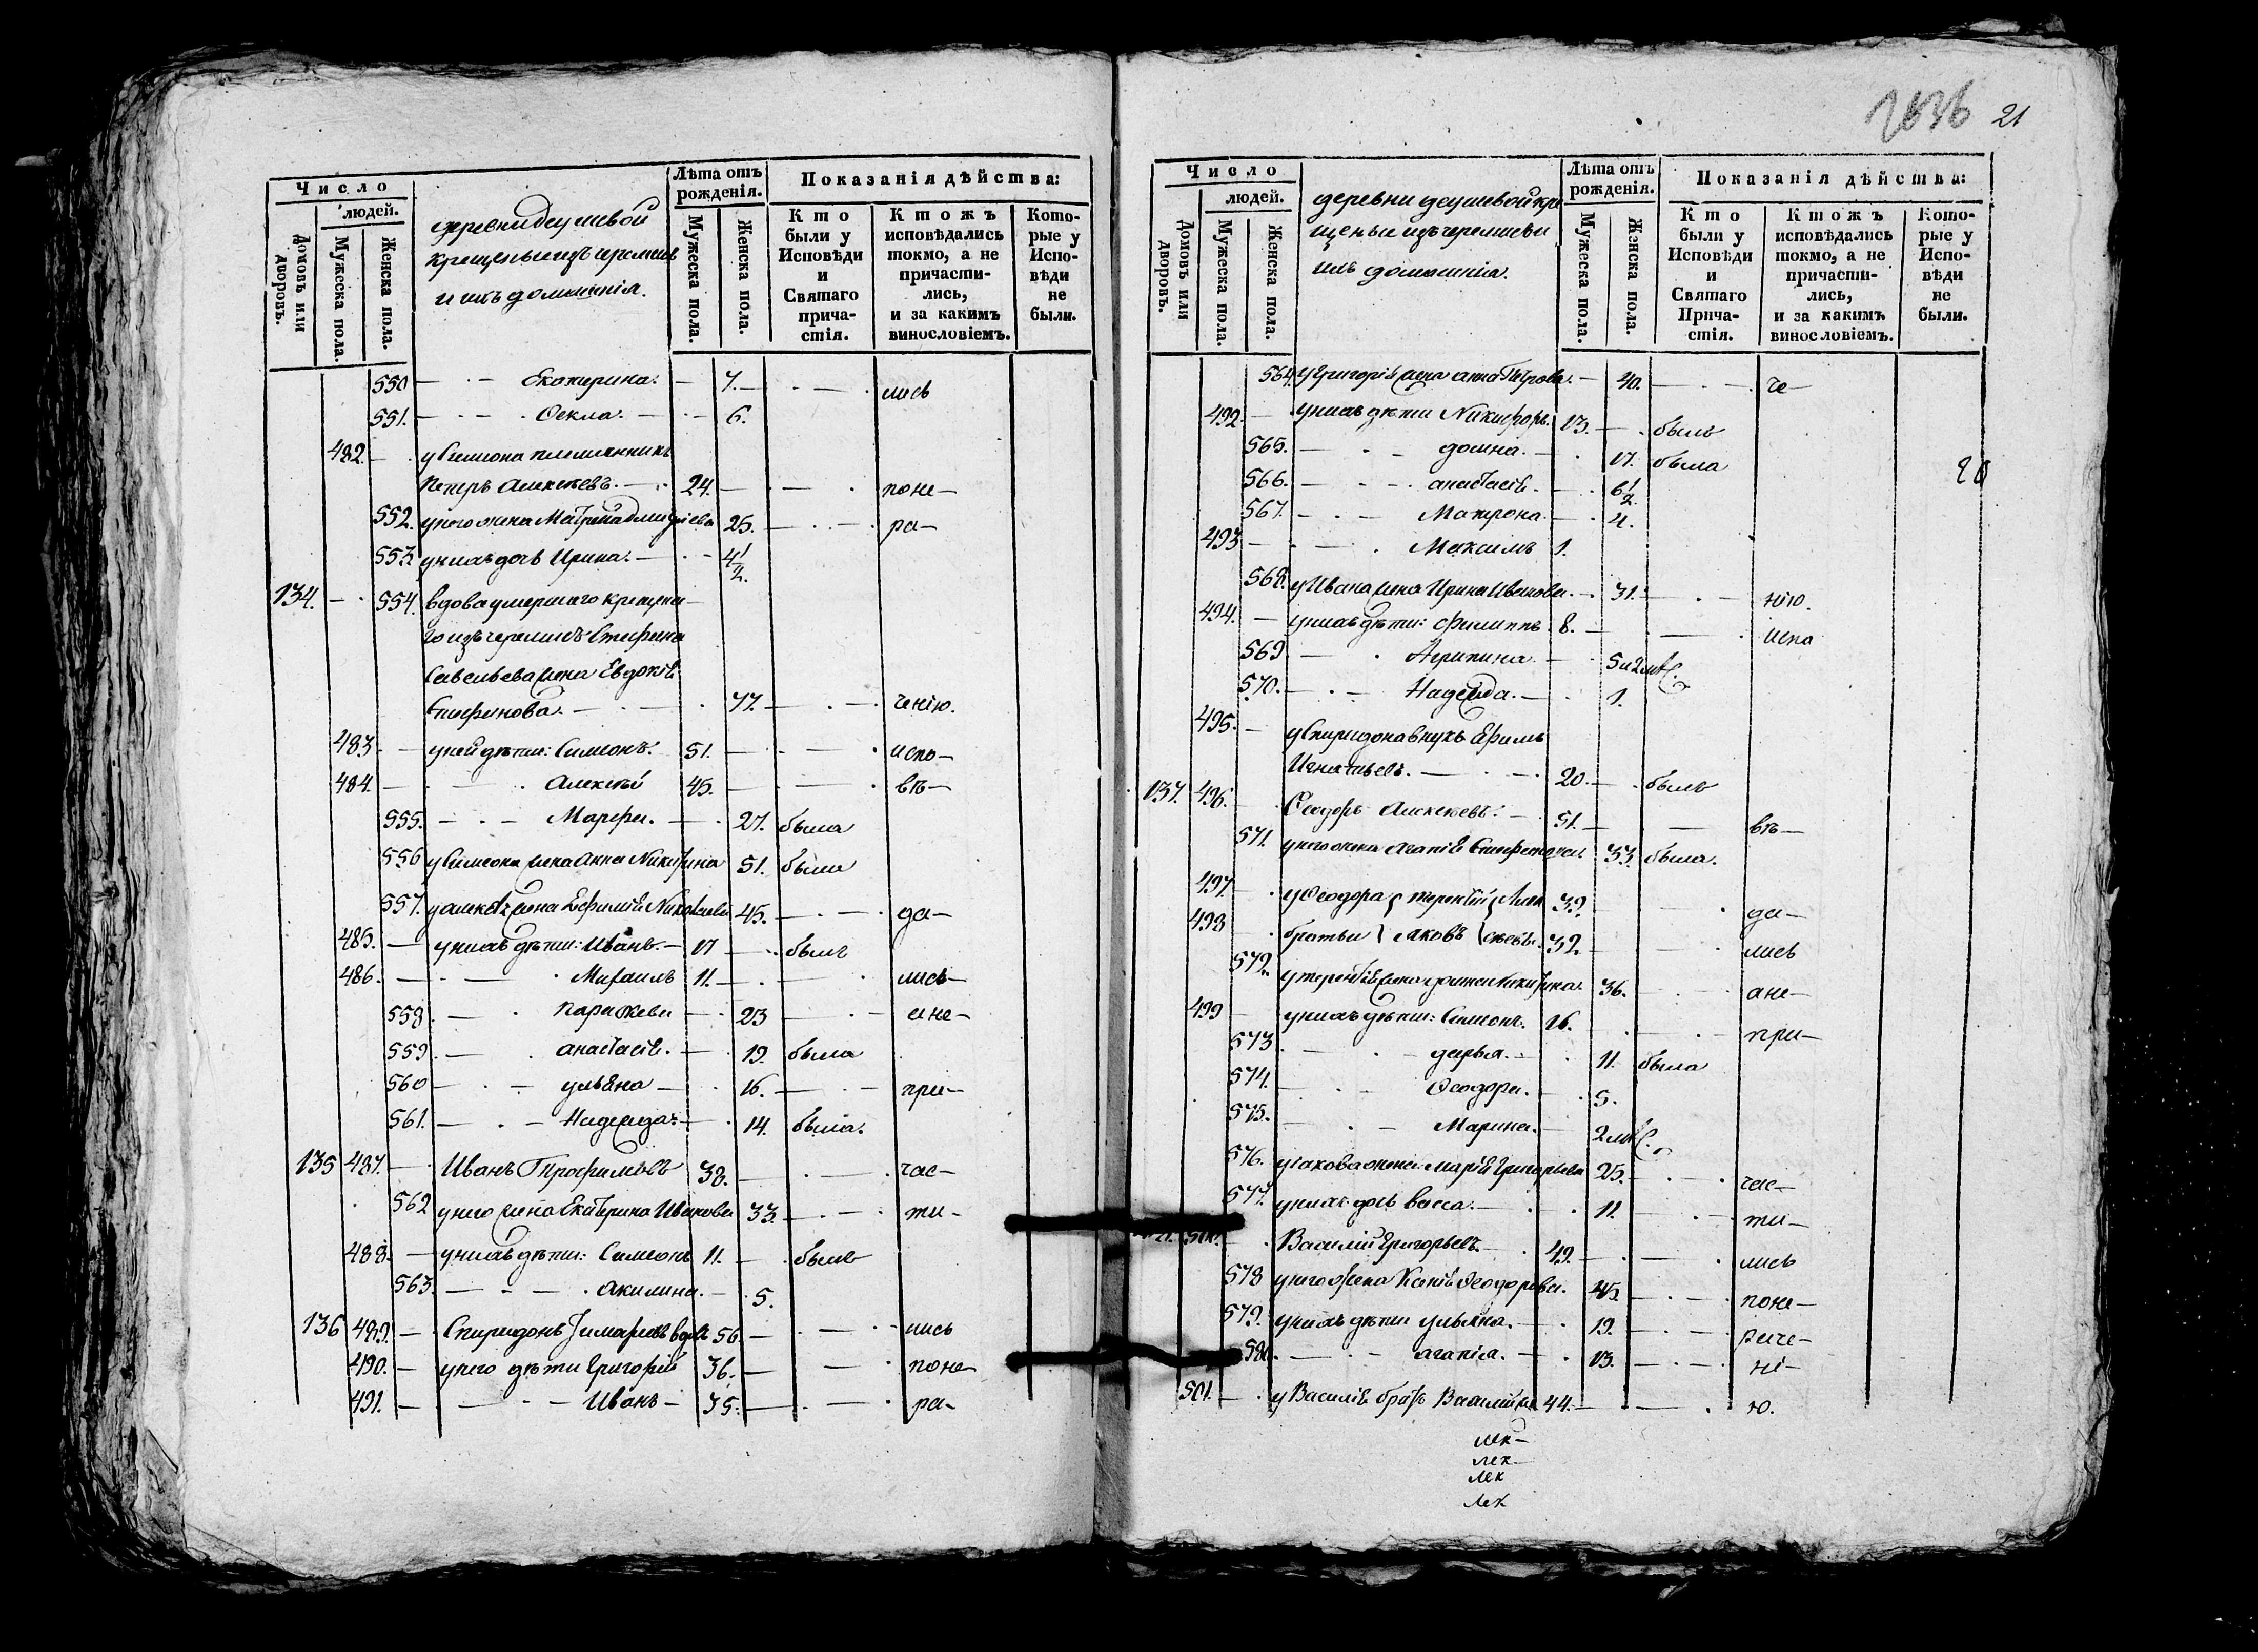 2636 21
Число
людей.
Домовъ или дворовъ.
Мужеска пола.
Женска пола.
деревни деушевой
крещеные изъ черемисъ
и ихъ домашнія.
Лѣта отъ рожденія.
Мужеска пола.
Женска пола.
Показанія дѣйства:
Кто были у Исповѣди и Святаго причастія.
Ктожъ исповѣдались токмо, а не причастились, и за какимъ винословіемъ.
Которые у Исповѣди не были.
550 — Екатерина. — 7. — лись
551. — Ѳекла. — 6.
482. — у Симеона племянникъ
Петръ Алексѣевъ. — 24. — поне—
552. у него жена Матрена 25. — ра—
553 у нихъ дочь Ирина. — 4 1/2.
134. — 554. вдова умершаго крещена—
го изъ черемисъ Стефана
Савельева жена Евдокія
Епифанова. — 77. — ченію.
483 — у ней дѣти: Симеонъ. 51. — испо—
484. — Алексѣй 45. — вѣ—
555. — Марфа. — 27. была
556 у Симеона жена Анна Никитина 51. была
557. у Алексѣя жена Ефимія Николаева 45. — да—
485. — у нихъ дѣти: Иванъ. — 17 — былъ
486. — Михаилъ 11. — лись—
558 — Параскева — 23 — а не—
559. — Анастасія. — 19. была
560 — Ульяна — 16. — при—
561. — Надежда. — 14. была.
135 487. — Иванъ Трофимовъ 38. — час—
562 у него жена Екатерина Иванова 33. — ти—
488. — у нихъ дѣти: Симеонъ 11. — былъ
563. — Акилина. — 5.
136 489. — Спиридонъ вдовъ 56. — лись
490. — у него дѣти Григорій 36. — поне—
491. — Иванъ — 35. — ра—
Число
людей.
Домовъ или дворовъ.
Мужеска пола.
Женска пола.
деревни деушевой кре
щеные изъ черемисъ и
ихъ домашнія.
Лѣта отъ рожденія.
Мужеска пола.
Женска пола.
Показанія дѣйства:
Кто были у Исповѣди и Святаго Причастія.
Ктожъ исповѣдались токмо, а не причастились, и за какимъ винословіемъ.
Которые у Исповѣди не были.
564. у Григорія жена Анна Петрова. — 40. — че—
492. — у нихъ дѣти Никифоръ. 13. — былъ
565. — домна. — 17. была
566. — анастасія. — 6 1/2
567. — Матрона. — 4.
493 — Максимъ 1.
568. у Ивана жена Ирина Иванова. — 31. — нію.
494. — у нихъ дѣти: Филиппъ 8. — испо
569 — Агрипина. — 5 и 2 мѣс.
570. — Надежда. — 1.
495. — у Спиридона внукъ Ефимъ
Игнатьевъ. — 20. — былъ
137. 496. Ѳеодоръ Алексѣевъ. — 51. — вѣ—
571. у него жена Агапія Епифанова 33. была.
497. у Ѳеодора терентій Алек 39. да—
498 братья Іаковъ сѣевы. 32. лись
572. у терентія жена Никитина. 36. а не—
499 у нихъ дѣти: Симеонъ. 16. при—
573 — дарья. — 11. была
574. — Ѳеодора. — 5.
575. — Марина. — 2 мѣс.
576. у Іакова жена Марія Григорьева 25. час—
577. у нихъ дочь васса. — 11. ти—
500. — Василій Григорьевъ. — 49. — лись
578 у него жена Ксенія Ѳеодорова. 45. поне—
579. у нихъ дѣти Ульяна. — 19. — рече—
580. — Агапія. — 13. — ні—
501. — у Василія братъ Василій же 44. — ю.
лек—
лек—
лек
лек